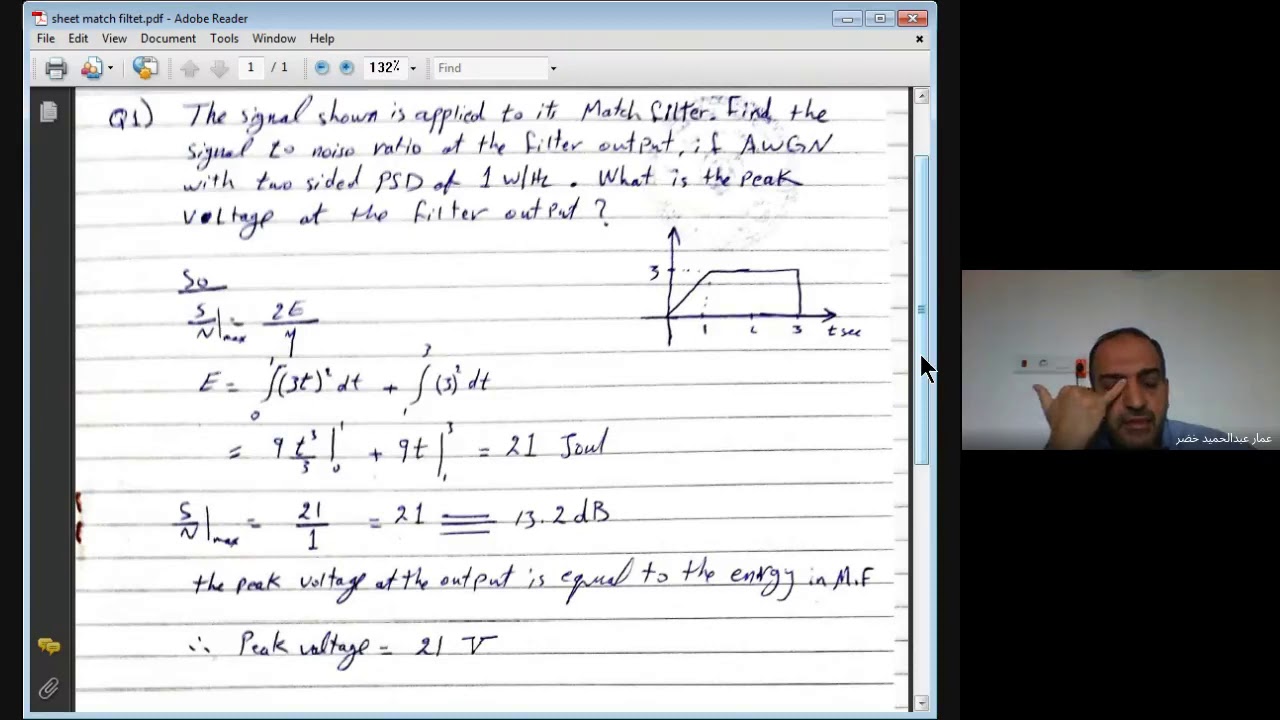 sheet match filtet.pdf - Adobe Reader
File Edit View Document Tools Window Help
1 / 1 132% Find
Q1) The signal shown is applied to its Match filter. Find the
signal to noise ratio at the filter output, if AWGN
with two sided PSD of 1 W/Hz. What is the peak
voltage at the filter output?
3
1 2 3 t sec
So
S/N|max = 2E/η
E = ∫₀¹(3t)² dt + ∫₁³(3)² dt
= 9 t³/3 |₀¹ + 9t |₁³ = 21 Joul
S/N|max = 21/1 = 21 ≡ 13.2 dB
the peak voltage at the output is equal to the energy in M.F
∴ Peak voltage = 21 V
عمار عبدالحميد خضر